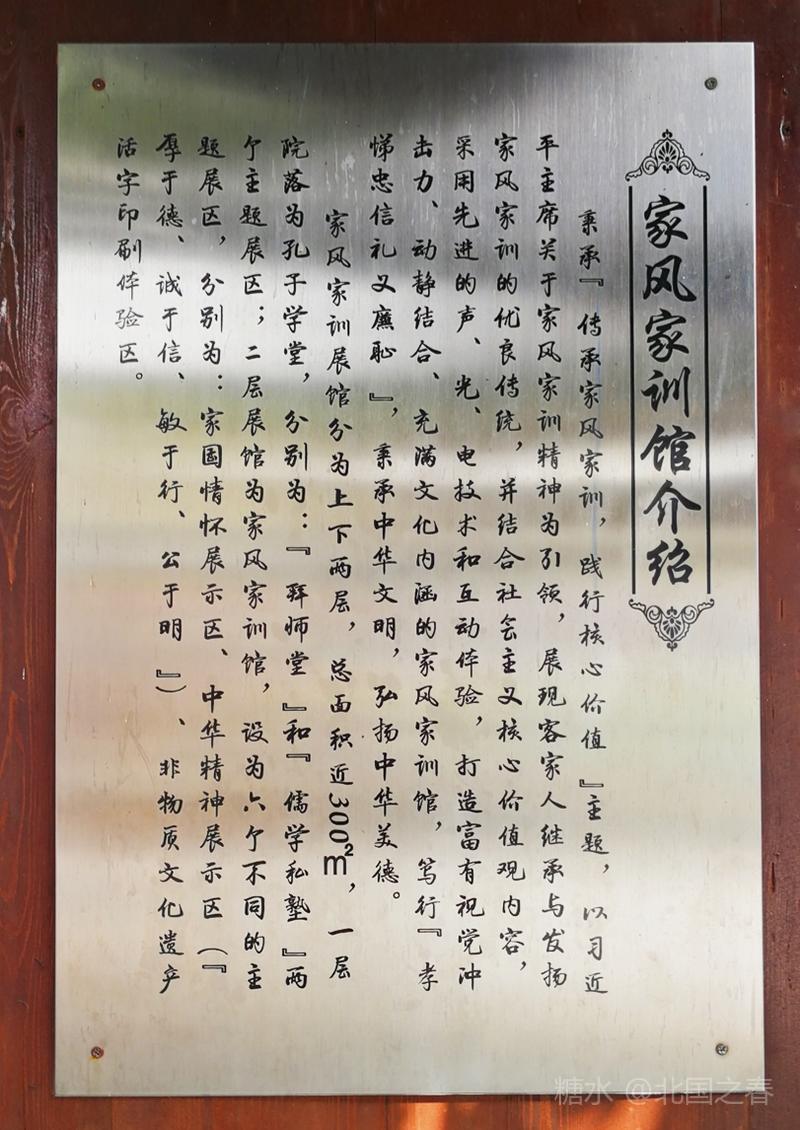 家风家训馆介绍
秉承『传承家风家训，践行核心价值』主题，以习近
平主席关于家风家训精神为引领，展现客家人继承与发扬
家风家训的优良传统，并结合社会主义核心价值观内容，
采用先进的声、光、电技术和互动体验，打造富有视觉冲
击力、动静结合、充满文化内涵的家风家训馆，笃行『孝
悌忠信礼义廉耻』，秉承中华文明，弘扬中华美德。
家风家训展馆分为上下两层，总面积近300㎡，一层
院落为孔子学堂，分别为：『拜师堂』和『儒学私塾』两
个主题展区；二层展馆为家风家训馆，设为六个不同的主
题展区，分别为：家国情怀展示区、中华精神展示区（『
厚于德、诚于信、敏于行、公于明』）、非物质文化遗产
活字印刷体验区。
糖水 @北国之春